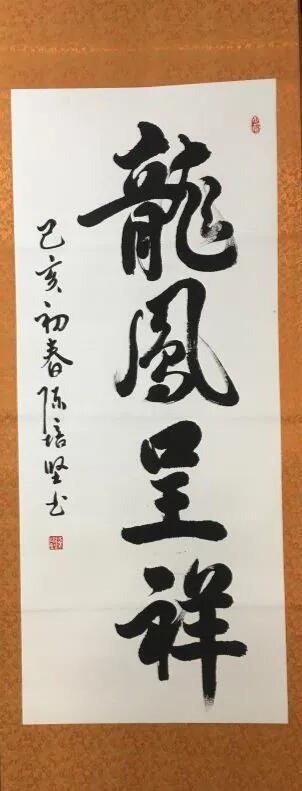 龍鳳呈祥
己亥初春陈培坚书